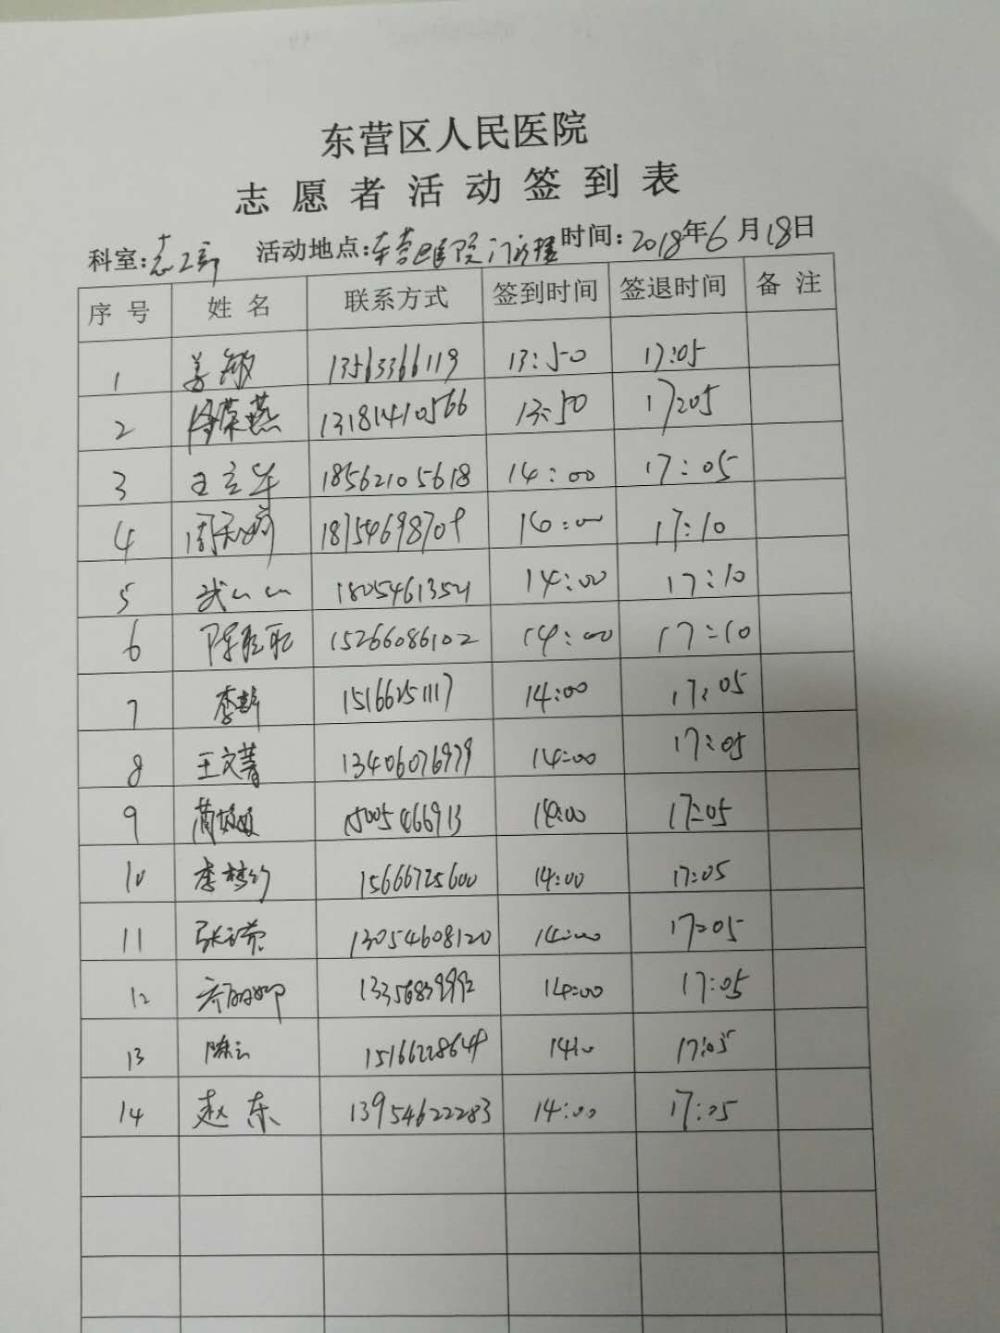 东营区人民医院
志愿者活动签到表
科室:志工部 活动地点:东营区医院门诊楼 时间:2018年6月18日
序号 姓名 联系方式 签到时间 签退时间 备注
1 姜敏 13563366119 13:50 17:05
2 荣燕 13181410566 13:50 17:05
3 王立华 18562105618 14:00 17:05
4 18754698709 14:00 17:10
5 武 18054613521 14:00 17:10
6 陈 15266086102 14:00 17:10
7 李 15166251117 14:00 17:05
8 王文菁 13406076979 14:00 17:05
9 15005466913 14:00 17:05
10 李梦 15666725600 14:00 17:05
11 张 13054608120 14:00 17:05
12 齐丽娜 13356839992 14:00 17:05
13 陈云 15166228649 17:05
14 赵东 13954622283 14:00 17:05